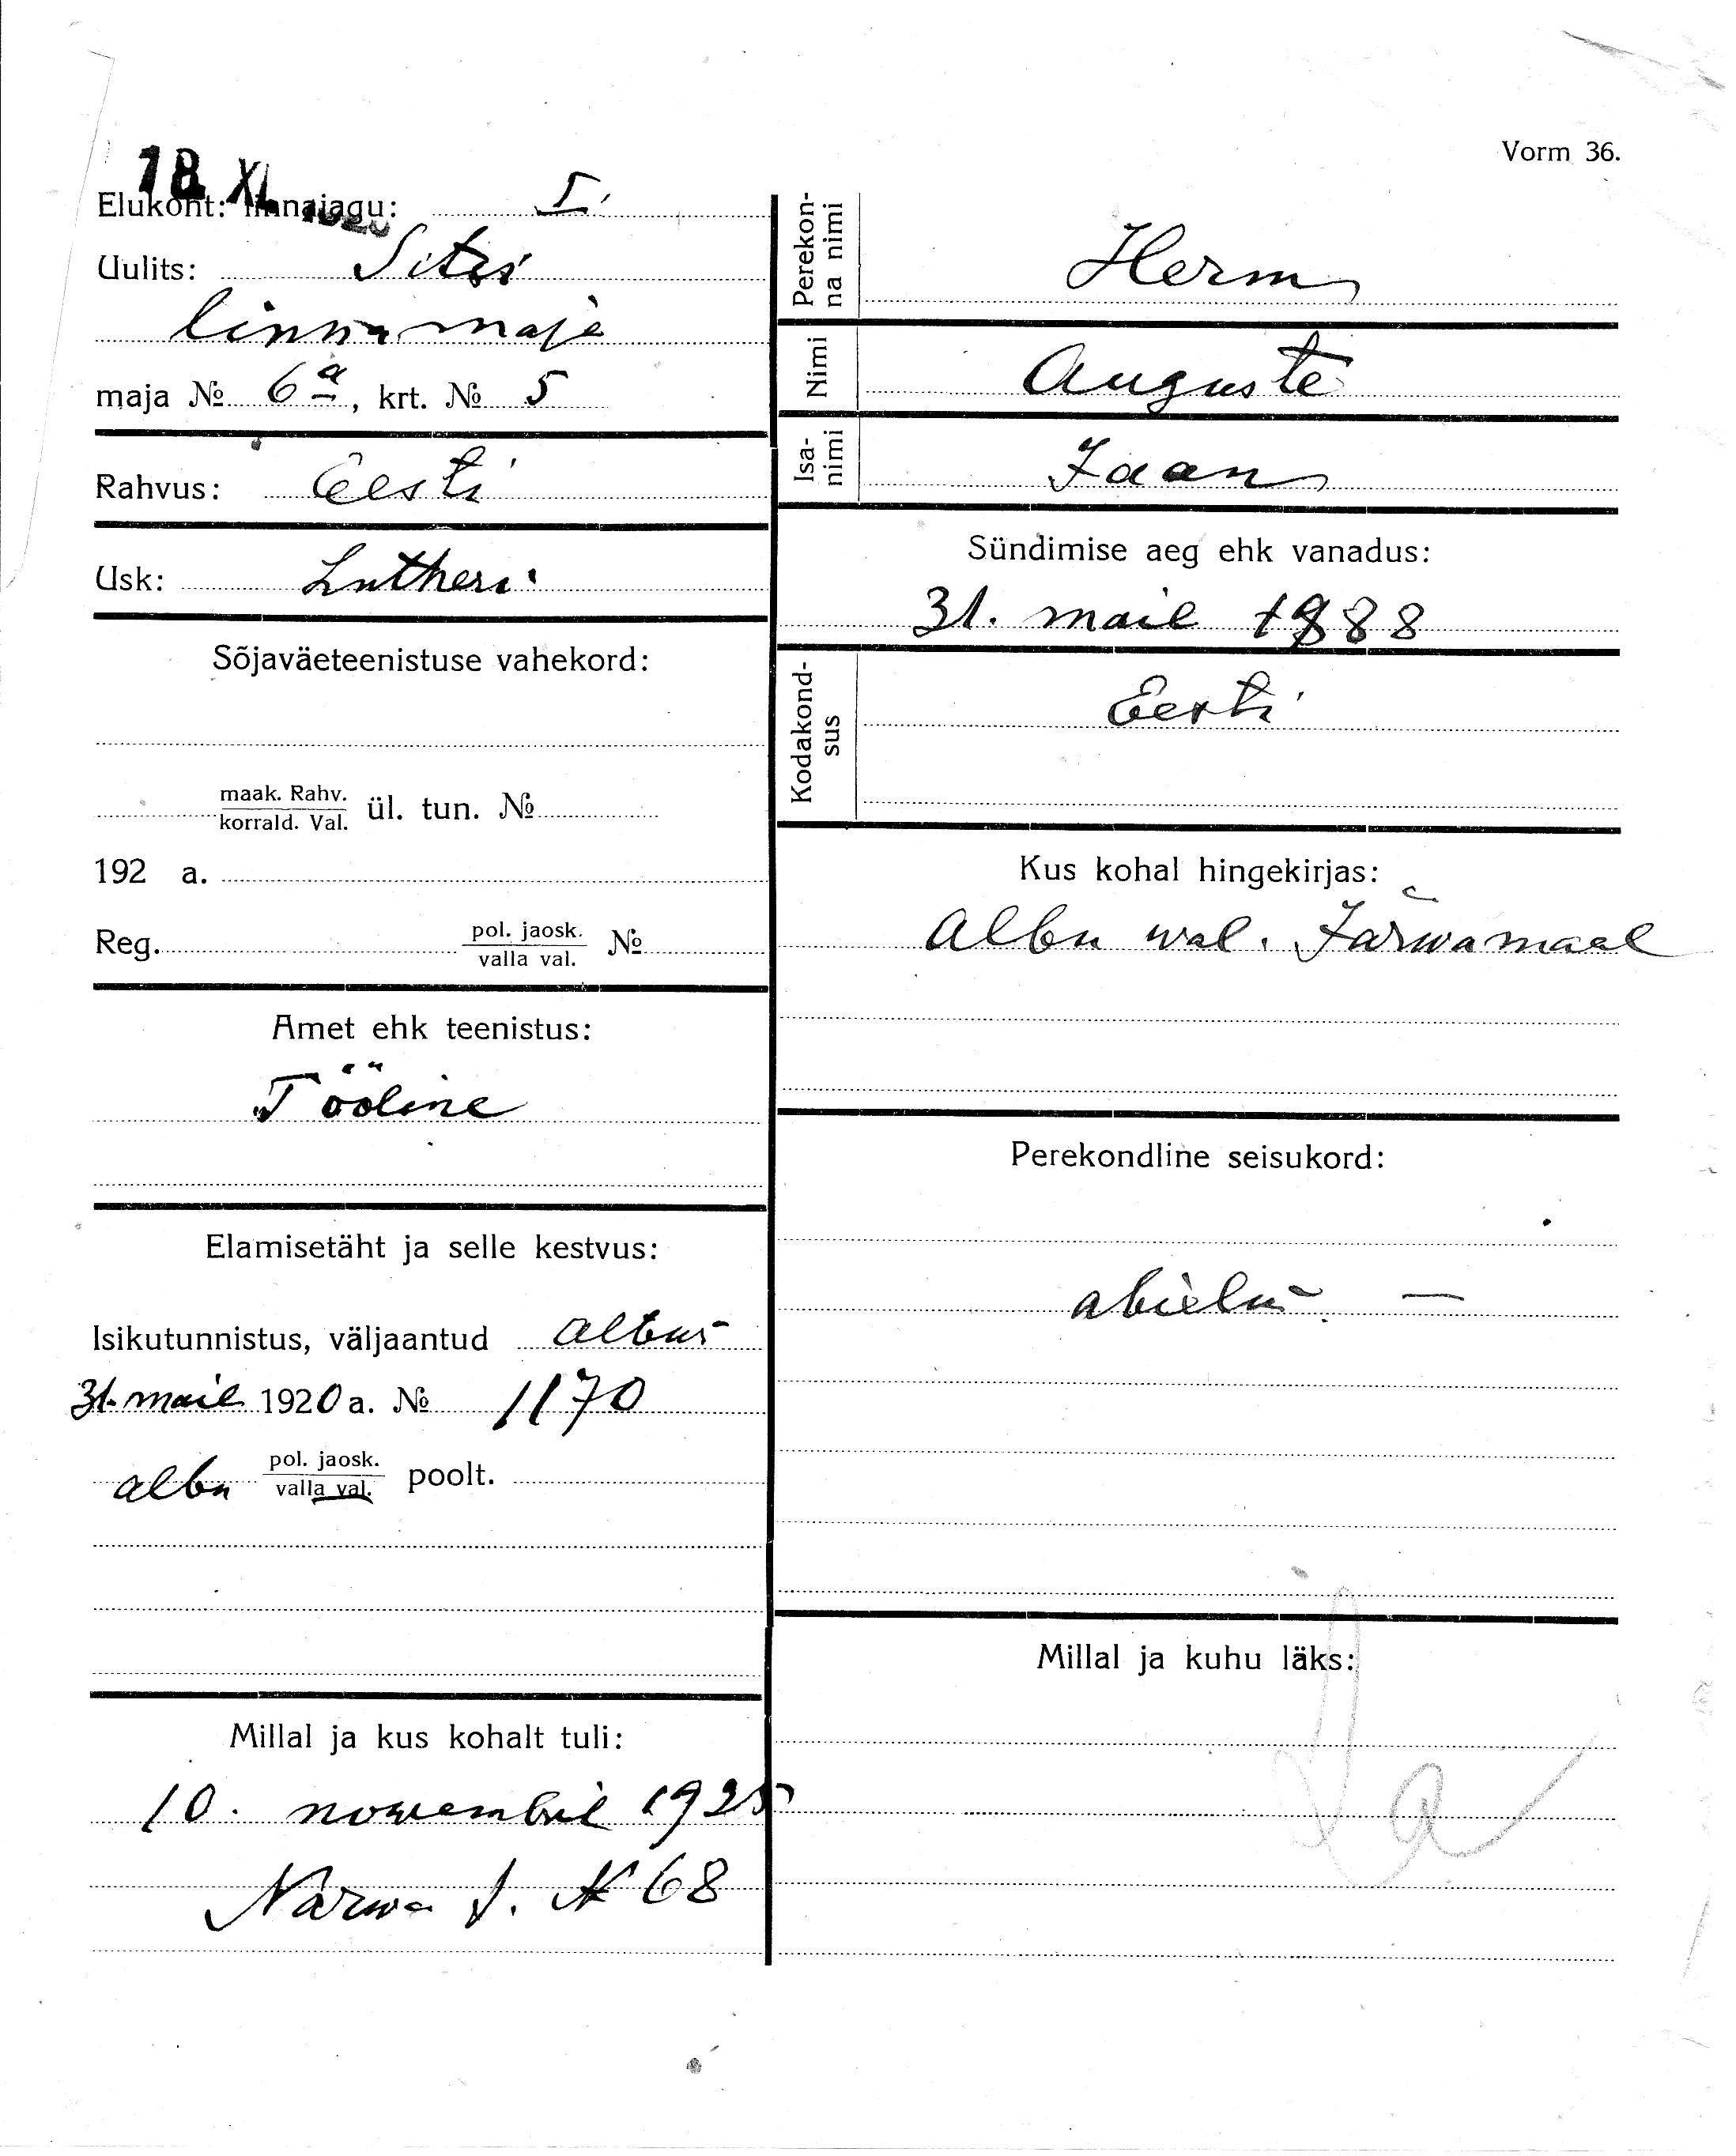 Vorm 36.
18. XI.
Elukoht: linnajagu: I.
Uulits: Sitsi
linna maja
maja № 6a, krt. № 5
Rahvus: Eesti
Usk: Lutheri
Sõjaväeteenistuse vahekord:
maak. Rahv.
korrald. Val. ül. tun. №
192 a.
Reg. pol. jaosk.
valla val. №
Amet ehk teenistus:
Tööline
Elamisetäht ja selle kestvus:
Isikutunnistus, väljaantud Albus
31. mail 1920 a. № 1170
Albu pol. jaosk.
valla val. poolt.
Millal ja kus kohalt tuli:
10. novembril 1925
Narwa № 68
Perekon-
na nimi
Herm
Nimi
Auguste
Isa-
nimi
Jaan
Sündimise aeg ehk vanadus:
31. mail 1888
Kodakond-
sus
Eesti
Kus kohal hingekirjas:
Albu wal. Järwamaal
Perekondline seisukord:
abielus —
Millal ja kuhu läks: